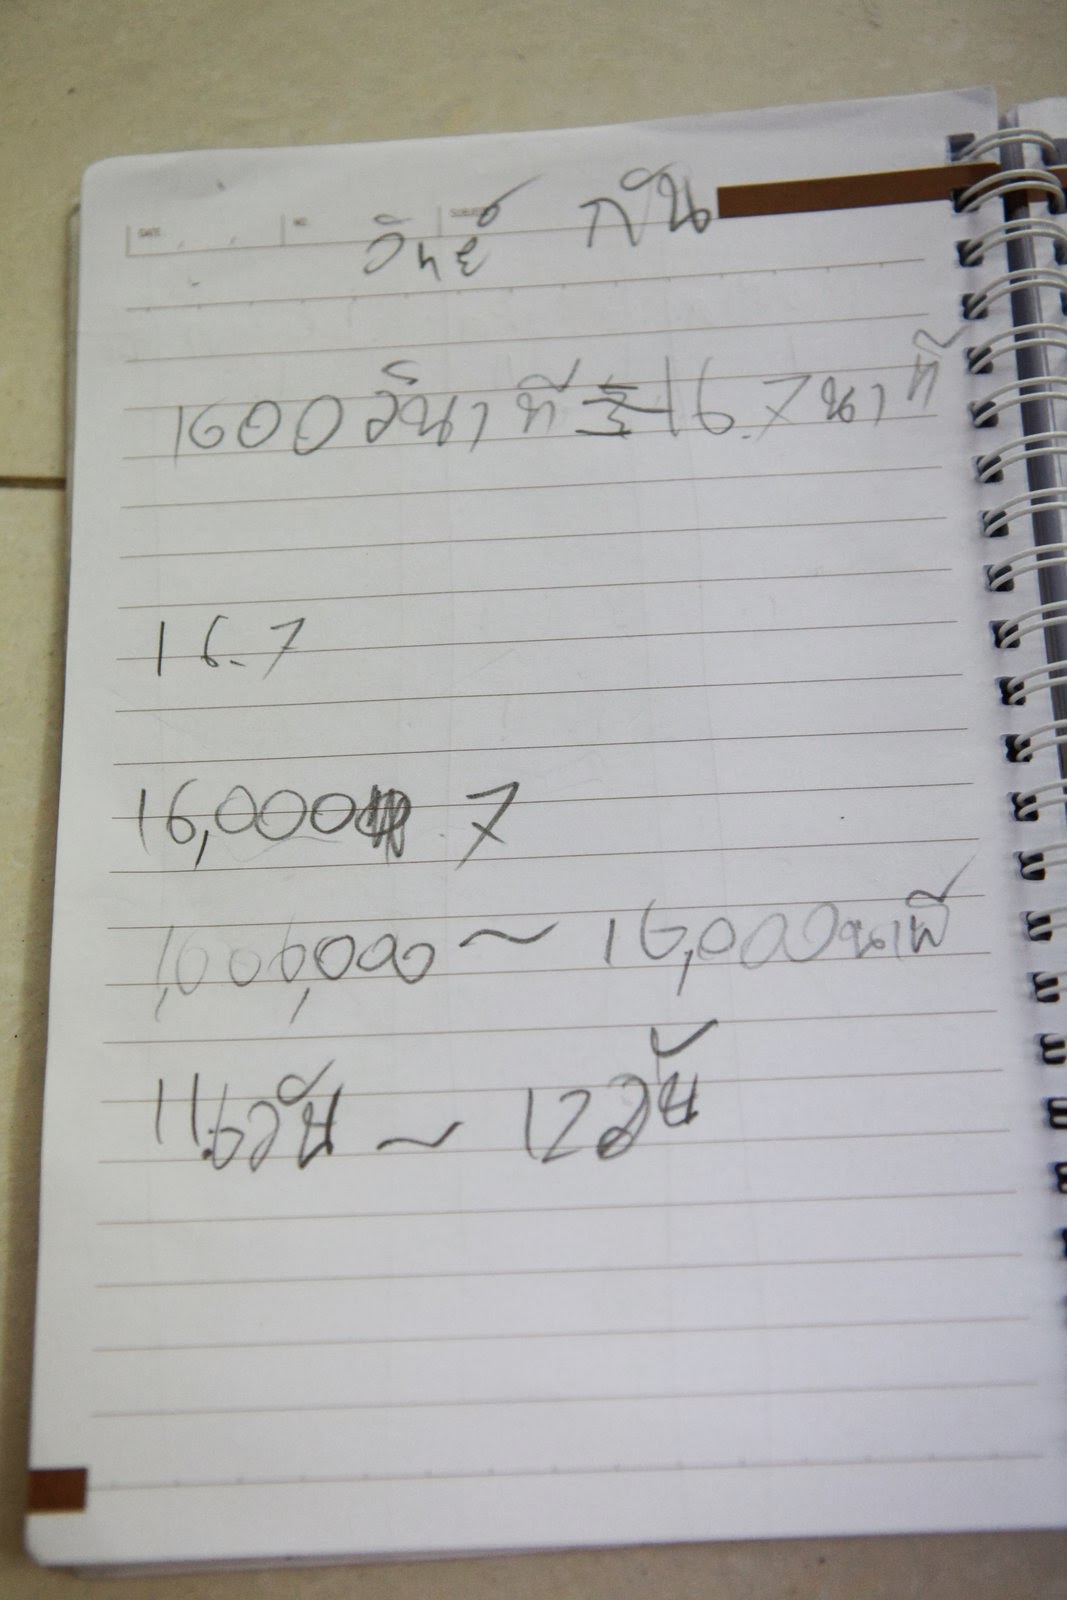 DATE NO SUBJECT
กัน
1600 วินาที 16.7 นาที
16.7
16,000 .7
1,000,000 ~ 16,000 นาที
11.6 วัน ~ 12 วัน